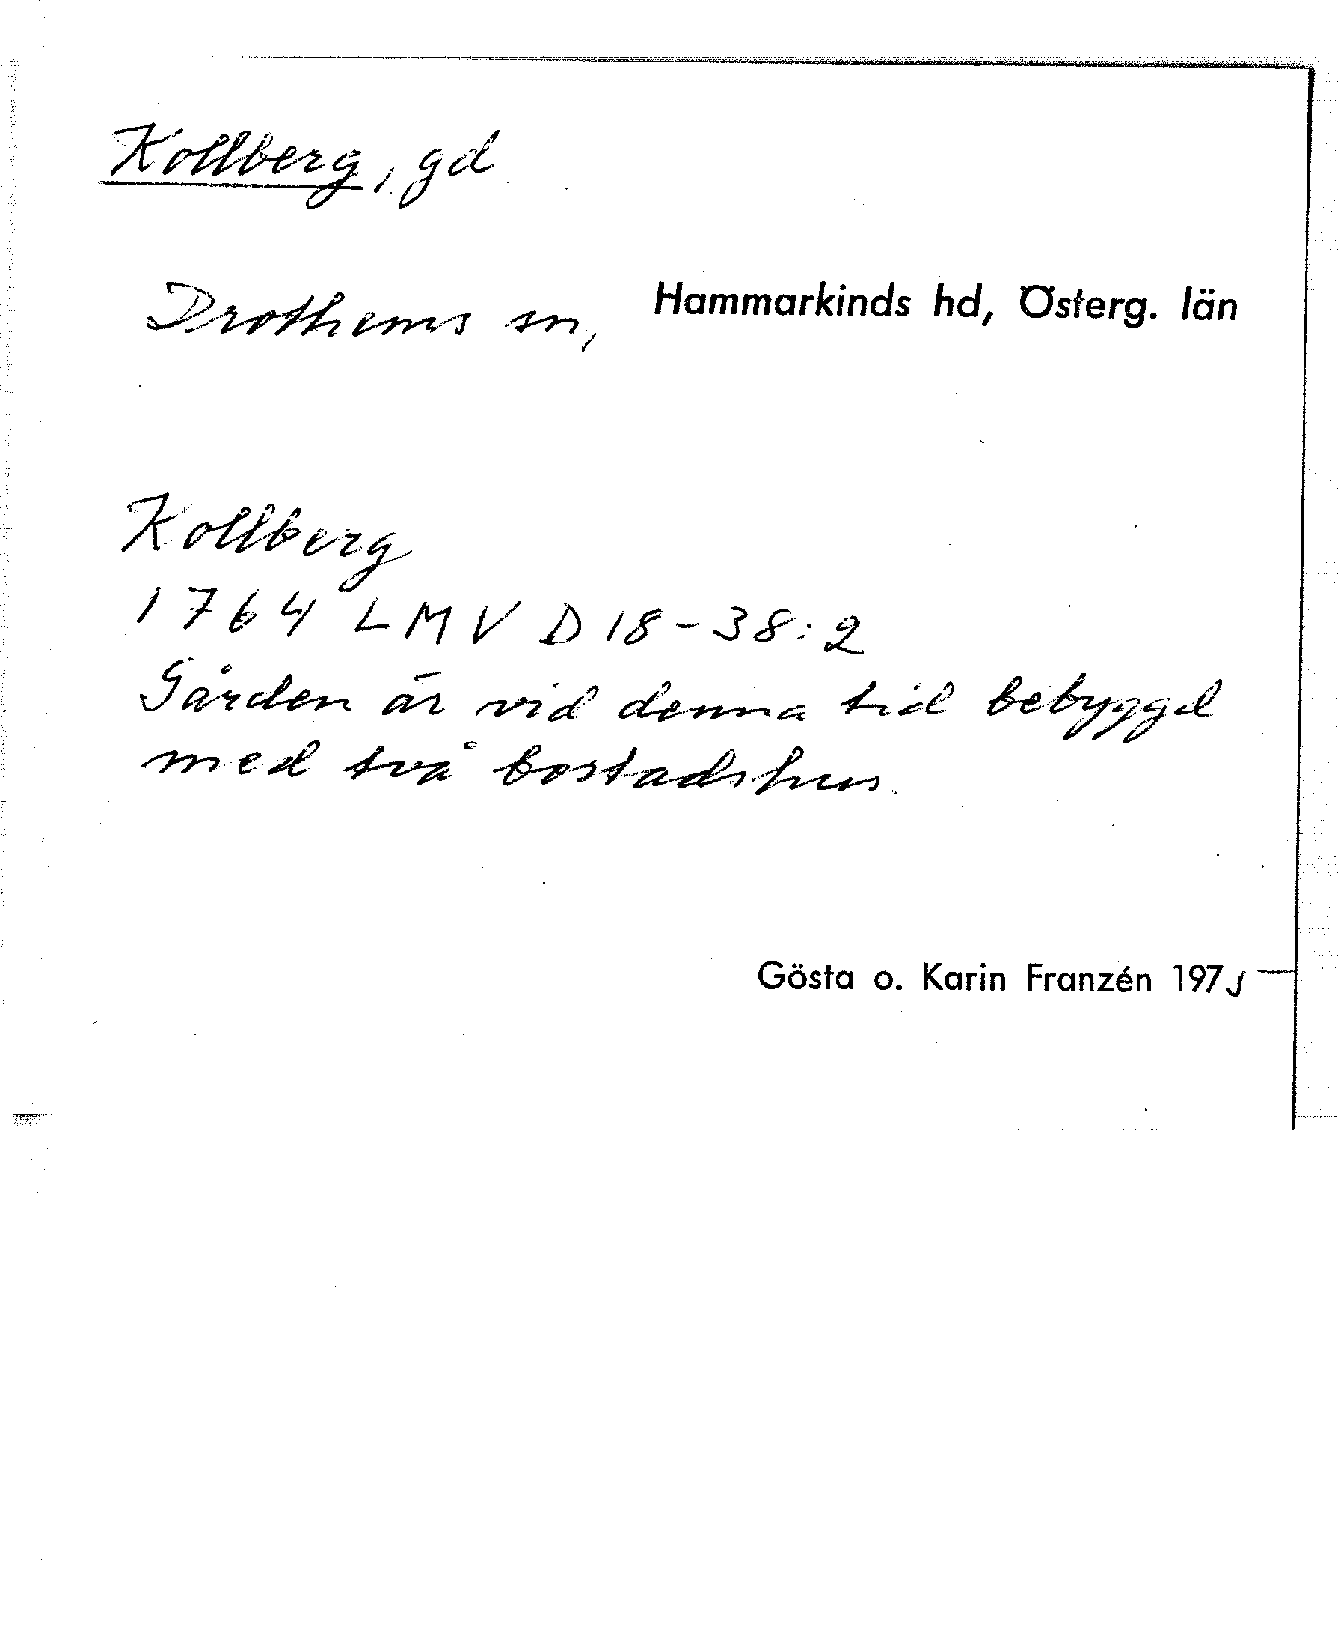 Kollberg, gd
Drothems sn, Hammarkinds hd, Österg. län
Kollberg
1764 LMV D 18-38:2
Gården är vid denna tid bebyggd
med två bostadshus.
Gösta o. Karin Franzén 1975